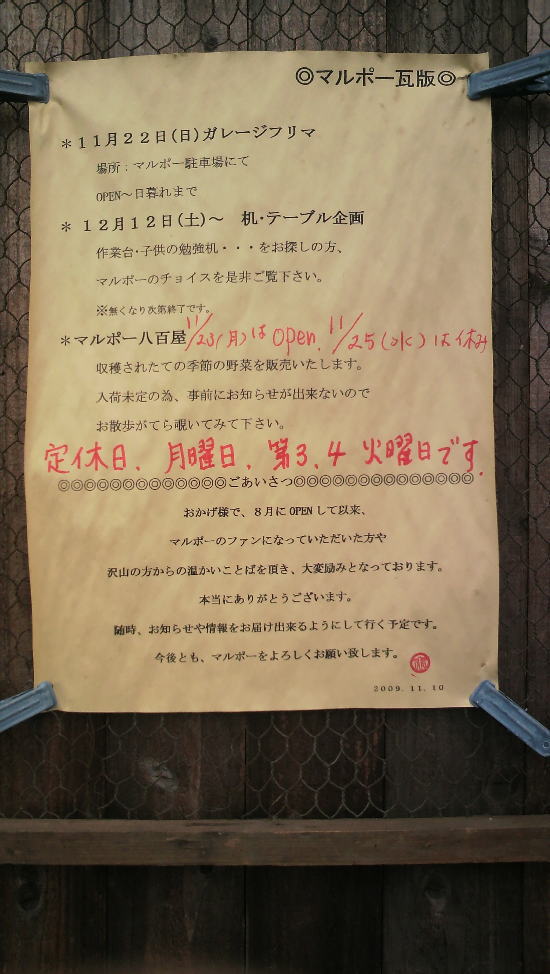 ◎マルポー瓦版◎
＊１１月２２日(日)ガレージフリマ
場所：マルポー駐車場にて
OPEN～日暮れまで
＊１２月１２日(土)～　机・テーブル企画
作業台・子供の勉強机・・・をお探しの方、
マルポーのチョイスを是非ご覧下さい。
※無くなり次第終了です。
＊マルポー八百屋 11/23(月)は Open. 11/25(水)は休み
収穫されたての季節の野菜を販売いたします。
入荷未定の為、事前にお知らせが出来ないので
お散歩がてら覗いてみて下さい。
定休日、月曜日、第3、4 火曜日です.
◎◎◎◎◎◎◎◎◎◎◎◎◎ごあいさつ◎◎◎◎◎◎◎◎◎◎◎◎◎◎
おかげ様で、８月にOPENして以来、
マルポーのファンになっていただいた方や
沢山の方からの温かいことばを頂き、大変励みとなっております。
本当にありがとうございます。
随時、お知らせや情報をお届け出来るようにして行く予定です。
今後とも、マルポーをよろしくお願い致します。
2009.11.10